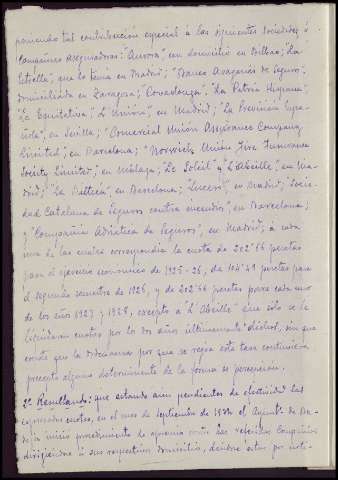 poniendo tal contribución especial á las siguientes Sociedades ó
Compañías Aseguradoras: "Aurora", con domicilio en Bilbao; "La
Estrella", que lo tenía en Madrid; "Banco Aragonés de Seguros",
domiciliada en Zaragoza; "Covadonga", "La Patria Hispana",
"La Equitativa", "L'Union", en Madrid; "La Previsión Espa-
ñola", en Sevilla; "Commercial Union Assurance Company
Limited", en Barcelona; "Norwich Union Fire Insurance
Society Limited", en Málaga; "Le Soleil" y "L'Abeille", en Ma-
drid; "La Baltica", en Barcelona; "Lucero", en Madrid; "Socie-
dad Catalana de Seguros contra incendios", en Barcelona;
y "Compañía Adriática de Seguros", en Madrid; á cada
una de las cuales correspondía la cuota de 202'66 pesetas
para el ejercicio económico de 1925-26, de 104'49 pesetas para
el segundo semestre de 1926, y de 202'66 pesetas para cada uno
de los años 1927 y 1928, excepto á "L'Abeille" que sólo se le
liquidaron cuotas por los dos años últimamente dichos, sin que
conste que la Ordenanza por que se regía esta tasa contuviera
precepto alguno determinante de la forma de percepción.
2º Resultando: que estando aún pendientes de efectividad las
expresadas cuotas, en el mes de septiembre de el Ayunt. de Ba-
dajoz inició procedimiento de apremio contra las referidas Compañías
dirigiéndose á sus respectivos domicilios, dándose éstas por noti-